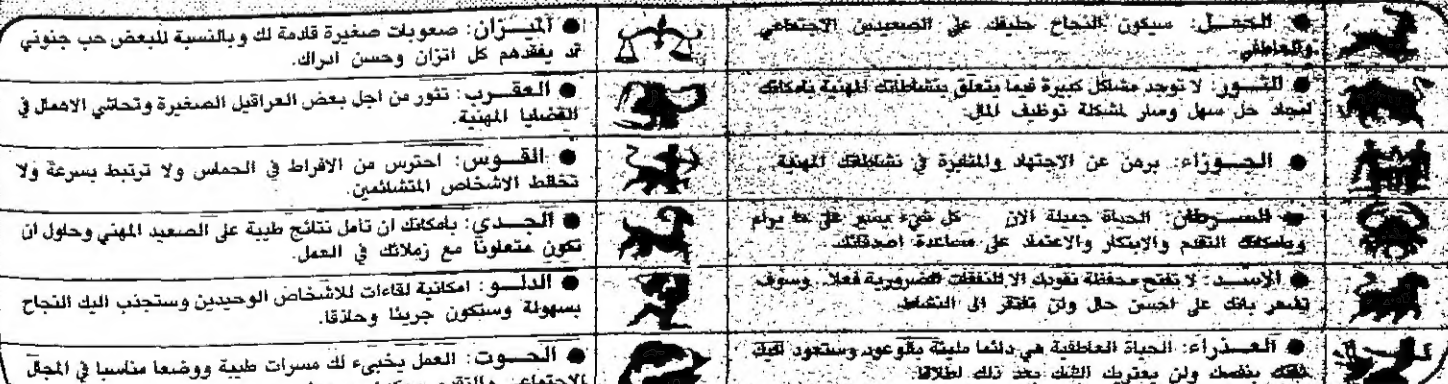 ● الحمـل: سيكون النجاح حليفك على الصعيدين الاجتماعي
والعاطفي
● الثـور: لا توجد مشاكل كبيرة فيما يتعلق بنشاطاتك المهنية بامكانك
ايجاد حل سهل وسار لمشكلة توظيف المال.
● الجـوزاء: برهن عن الاجتهاد والمثابرة في نشاطاتك المهنية
● السـرطان: الحياة جميلة الان كل شيء يسير على ما يرام
وبامكانك التقدم والابتكار والاعتماد على مساعدة اصدقائك
● الاسـد: لا تفتح محفظة نقودك الا للنفقات الضرورية فعلا. وسوف
تشعر بانك على احسن حال ولن تفتقر الى النشاط.
● العـذراء: الحياة العاطفية هي دائما مليئة بالوعود وستعود اليك
ثقتك بنفسك ولن يعتريك الشك بعد ذلك اطلاقا
● الميـزان: صعوبات صغيرة قادمة لك وبالنسبة للبعض حب جنوني
قد يفقدهم كل اتزان وحسن ادراك.
● العقـرب: تثور من اجل بعض العراقيل الصغيرة وتحاشي الاهمال في
القضايا المهنية.
● القـوس: احترس من الافراط في الحماس ولا ترتبط بسرعة ولا
تخالط الاشخاص المتشائمين.
● الجـدي: بامكانك ان تأمل نتائج طيبة على الصعيد المهني وحاول ان
تكون متعاونا مع زملائك في العمل.
● الدلـو: امكانية لقاءات للاشخاص الوحيدين وستجذب اليك النجاح
بسهولة وستكون جريئا وحاذقا.
● الحـوت: العمل يخبىء لك مسرات طيبة ووضعا مناسبا في المجال
الاجتماعي والتقدم